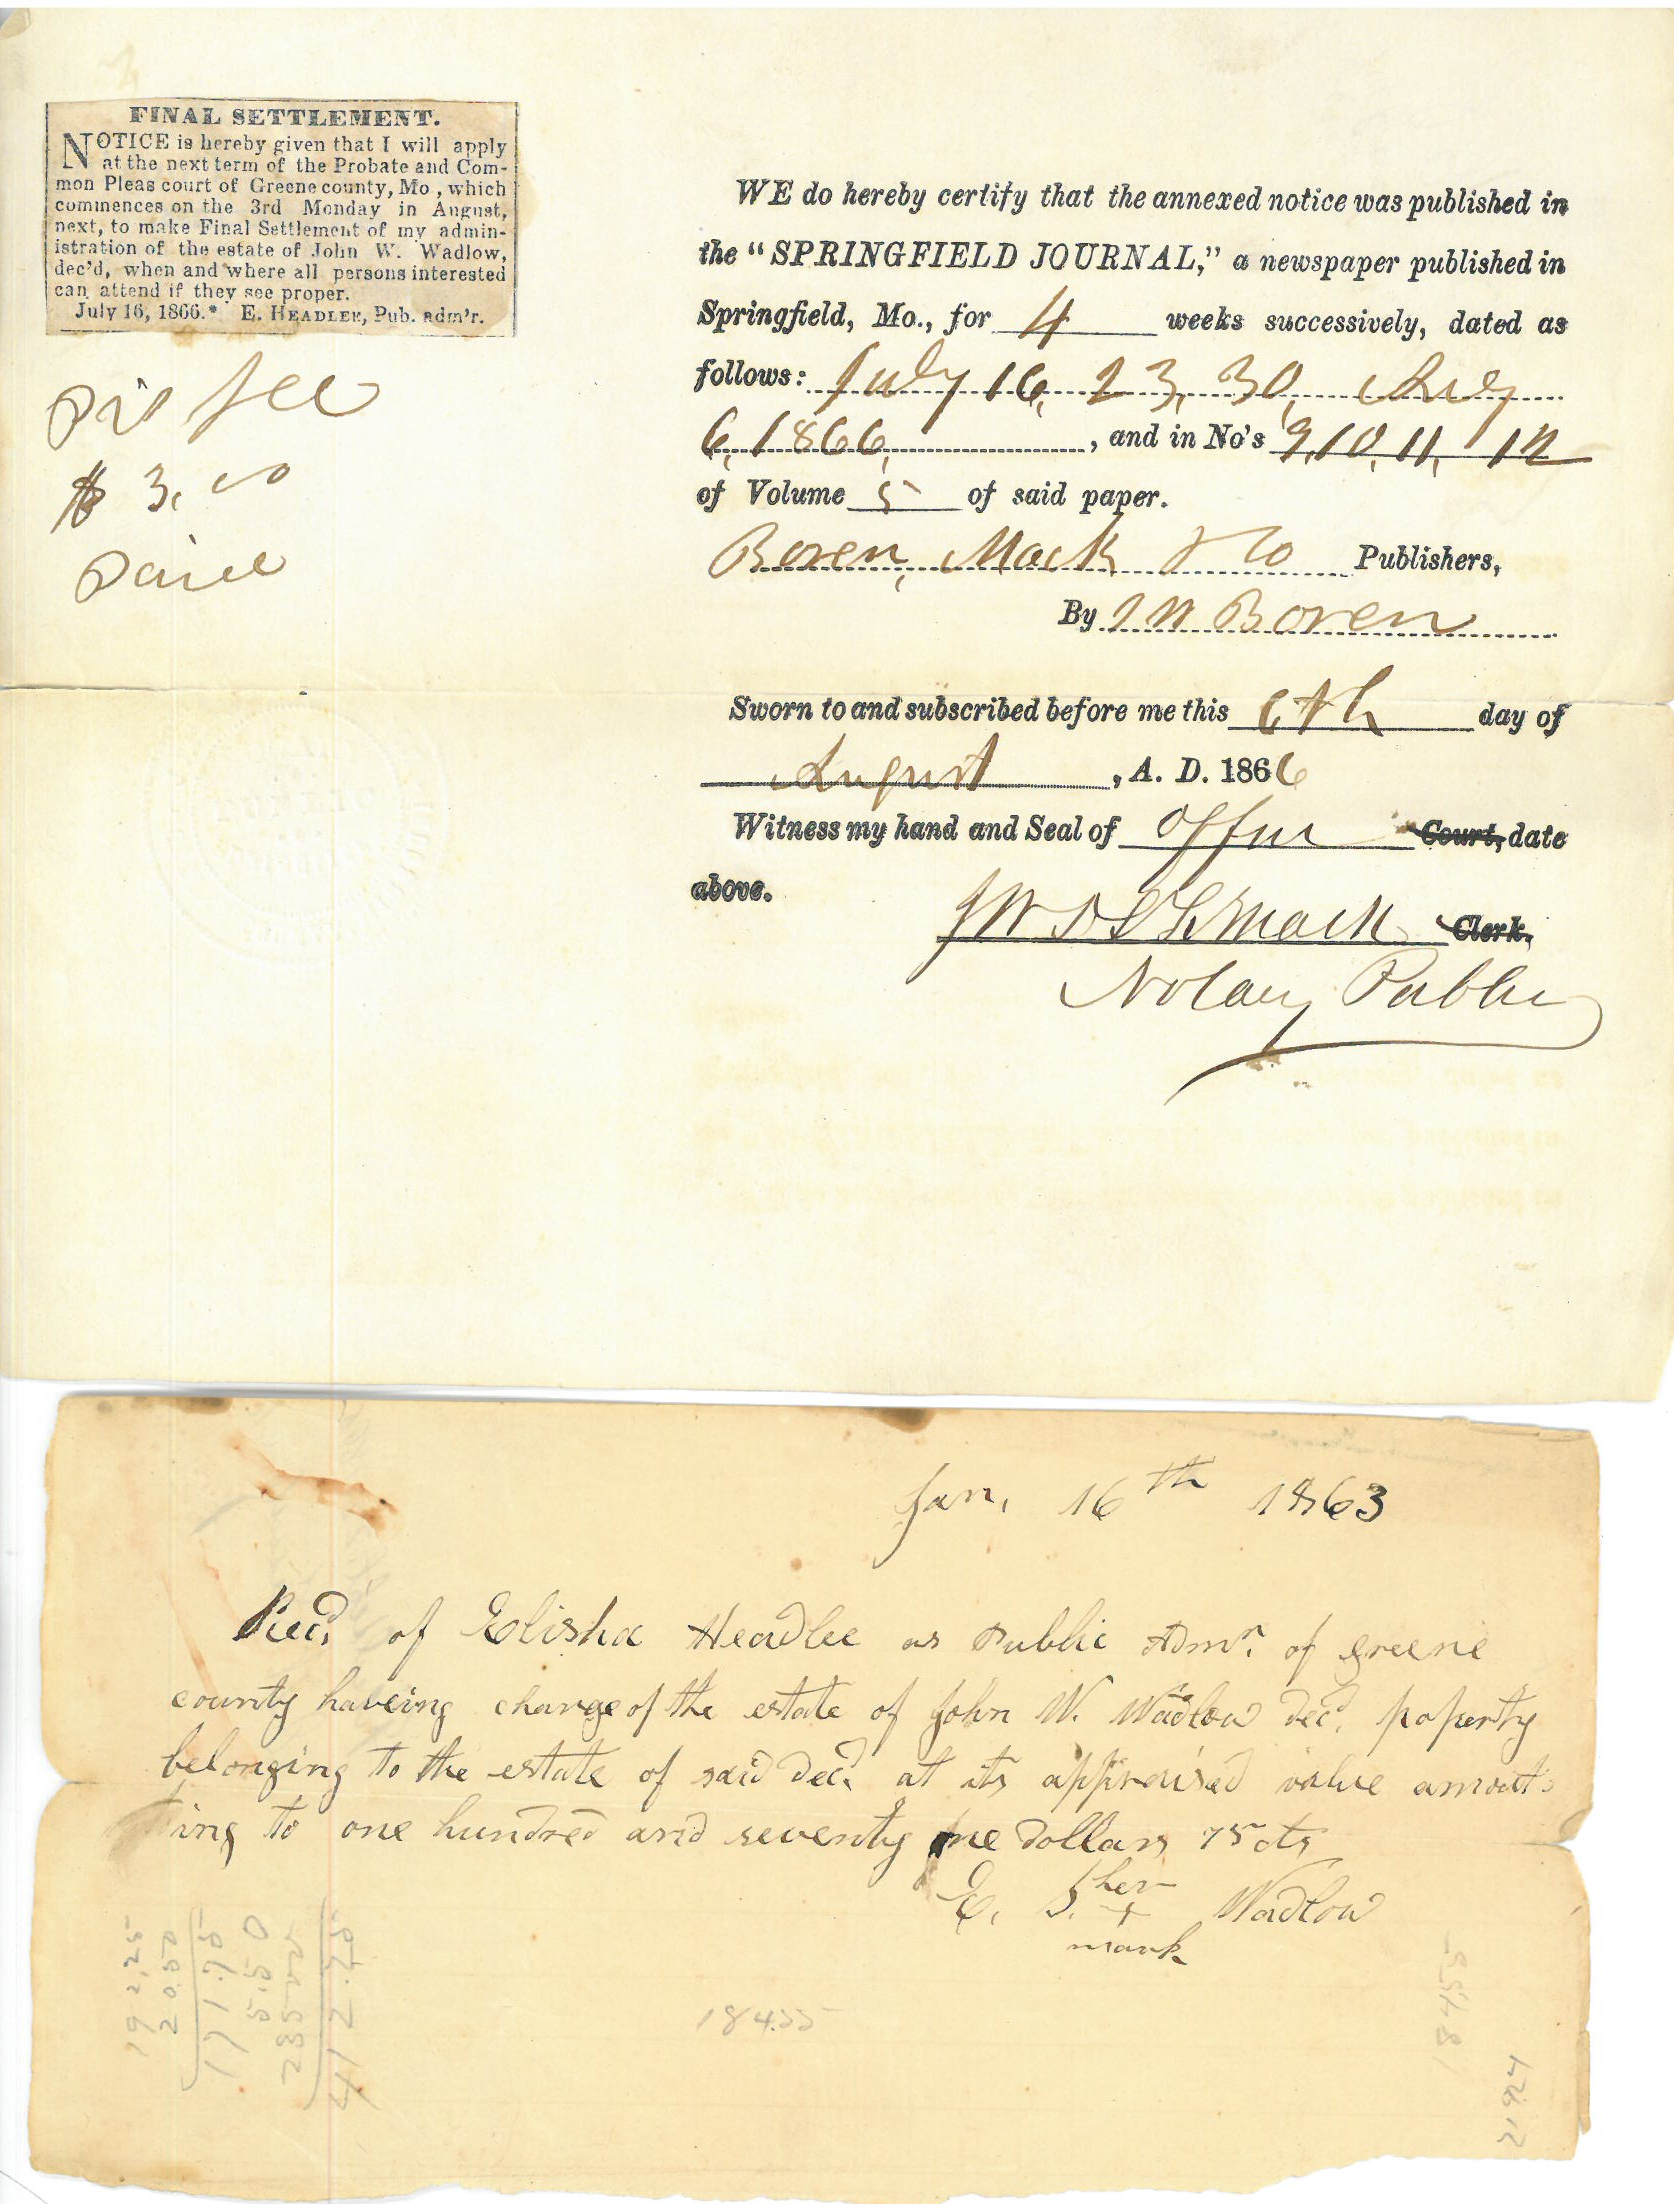 FINAL SETTLEMENT.
NOTICE is hereby given that I will apply
at the next term of the Probate and Com-
mon Pleas court of Greene county, Mo, which
commences on the 3rd Monday in August,
next, to make Final Settlement of my admin-
istration of the estate of John W. Wadlow,
dec'd, when and where all persons interested
can attend if they see proper.
July 16, 1866.* E. HEADLEE, Pub. adm'r.
fee
$ 3.00
Paid
WE do hereby certify that the annexed notice was published in
the "SPRINGFIELD JOURNAL," a newspaper published in
Springfield, Mo., for 4 weeks successively, dated as
follows: July 16, 23, 30, Aug
6, 1866, , and in No's 9, 10, 11, 12
of Volume 5 of said paper.
Boren, Mack & Co Publishers,
By Boren
Sworn to and subscribed before me this 6th day of
August , A. D. 1866
Witness my hand and Seal of Office Court, date
above.
Mack Clerk.
Notary Public
Jan, 16th 1863
Recd. of Elisha Headlee as Public Admr. of greene
county haveing charge of the estate of John W. Wadlow Decd. poperty
belonging to the estate of said Decd. at its appraised value amout-
ting to one hundred and seventy one Dollars 75 cts
E. S. her + Wadlow
mark
192.25
20.50
171.75
5.50
235
412.25
184.55
184.55
21924